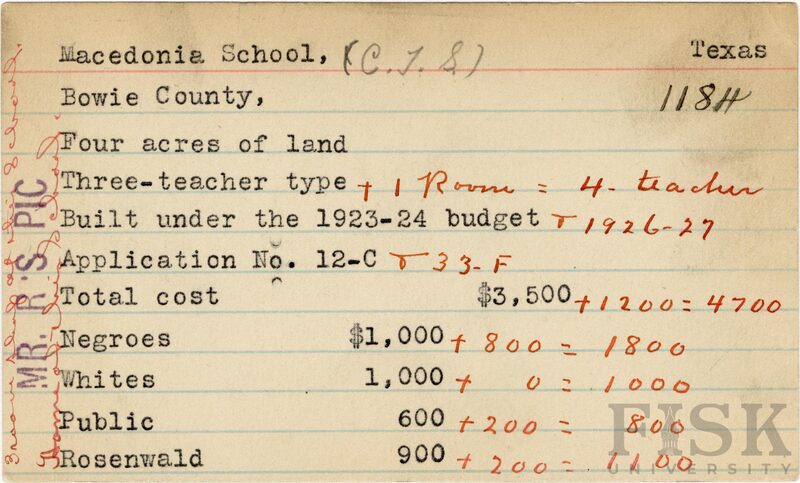 Macedonia School, (C.T.S.) Texas
Bowie County, 1184
Four acres of land
Three-teacher type + 1 Room = 4-teacher
Built under the 1923-24 budget + 1926-27
Application No. 12-C + 33-F
Total cost $3,500 + 1200 = 4700
Negroes $1,000 + 800 = 1800
Whites 1,000 + 0 = 1000
Public 600 + 200 = 800
Rosenwald 900 + 200 = 1100
MR. R'S PIC
FISK
UNIVERSITY